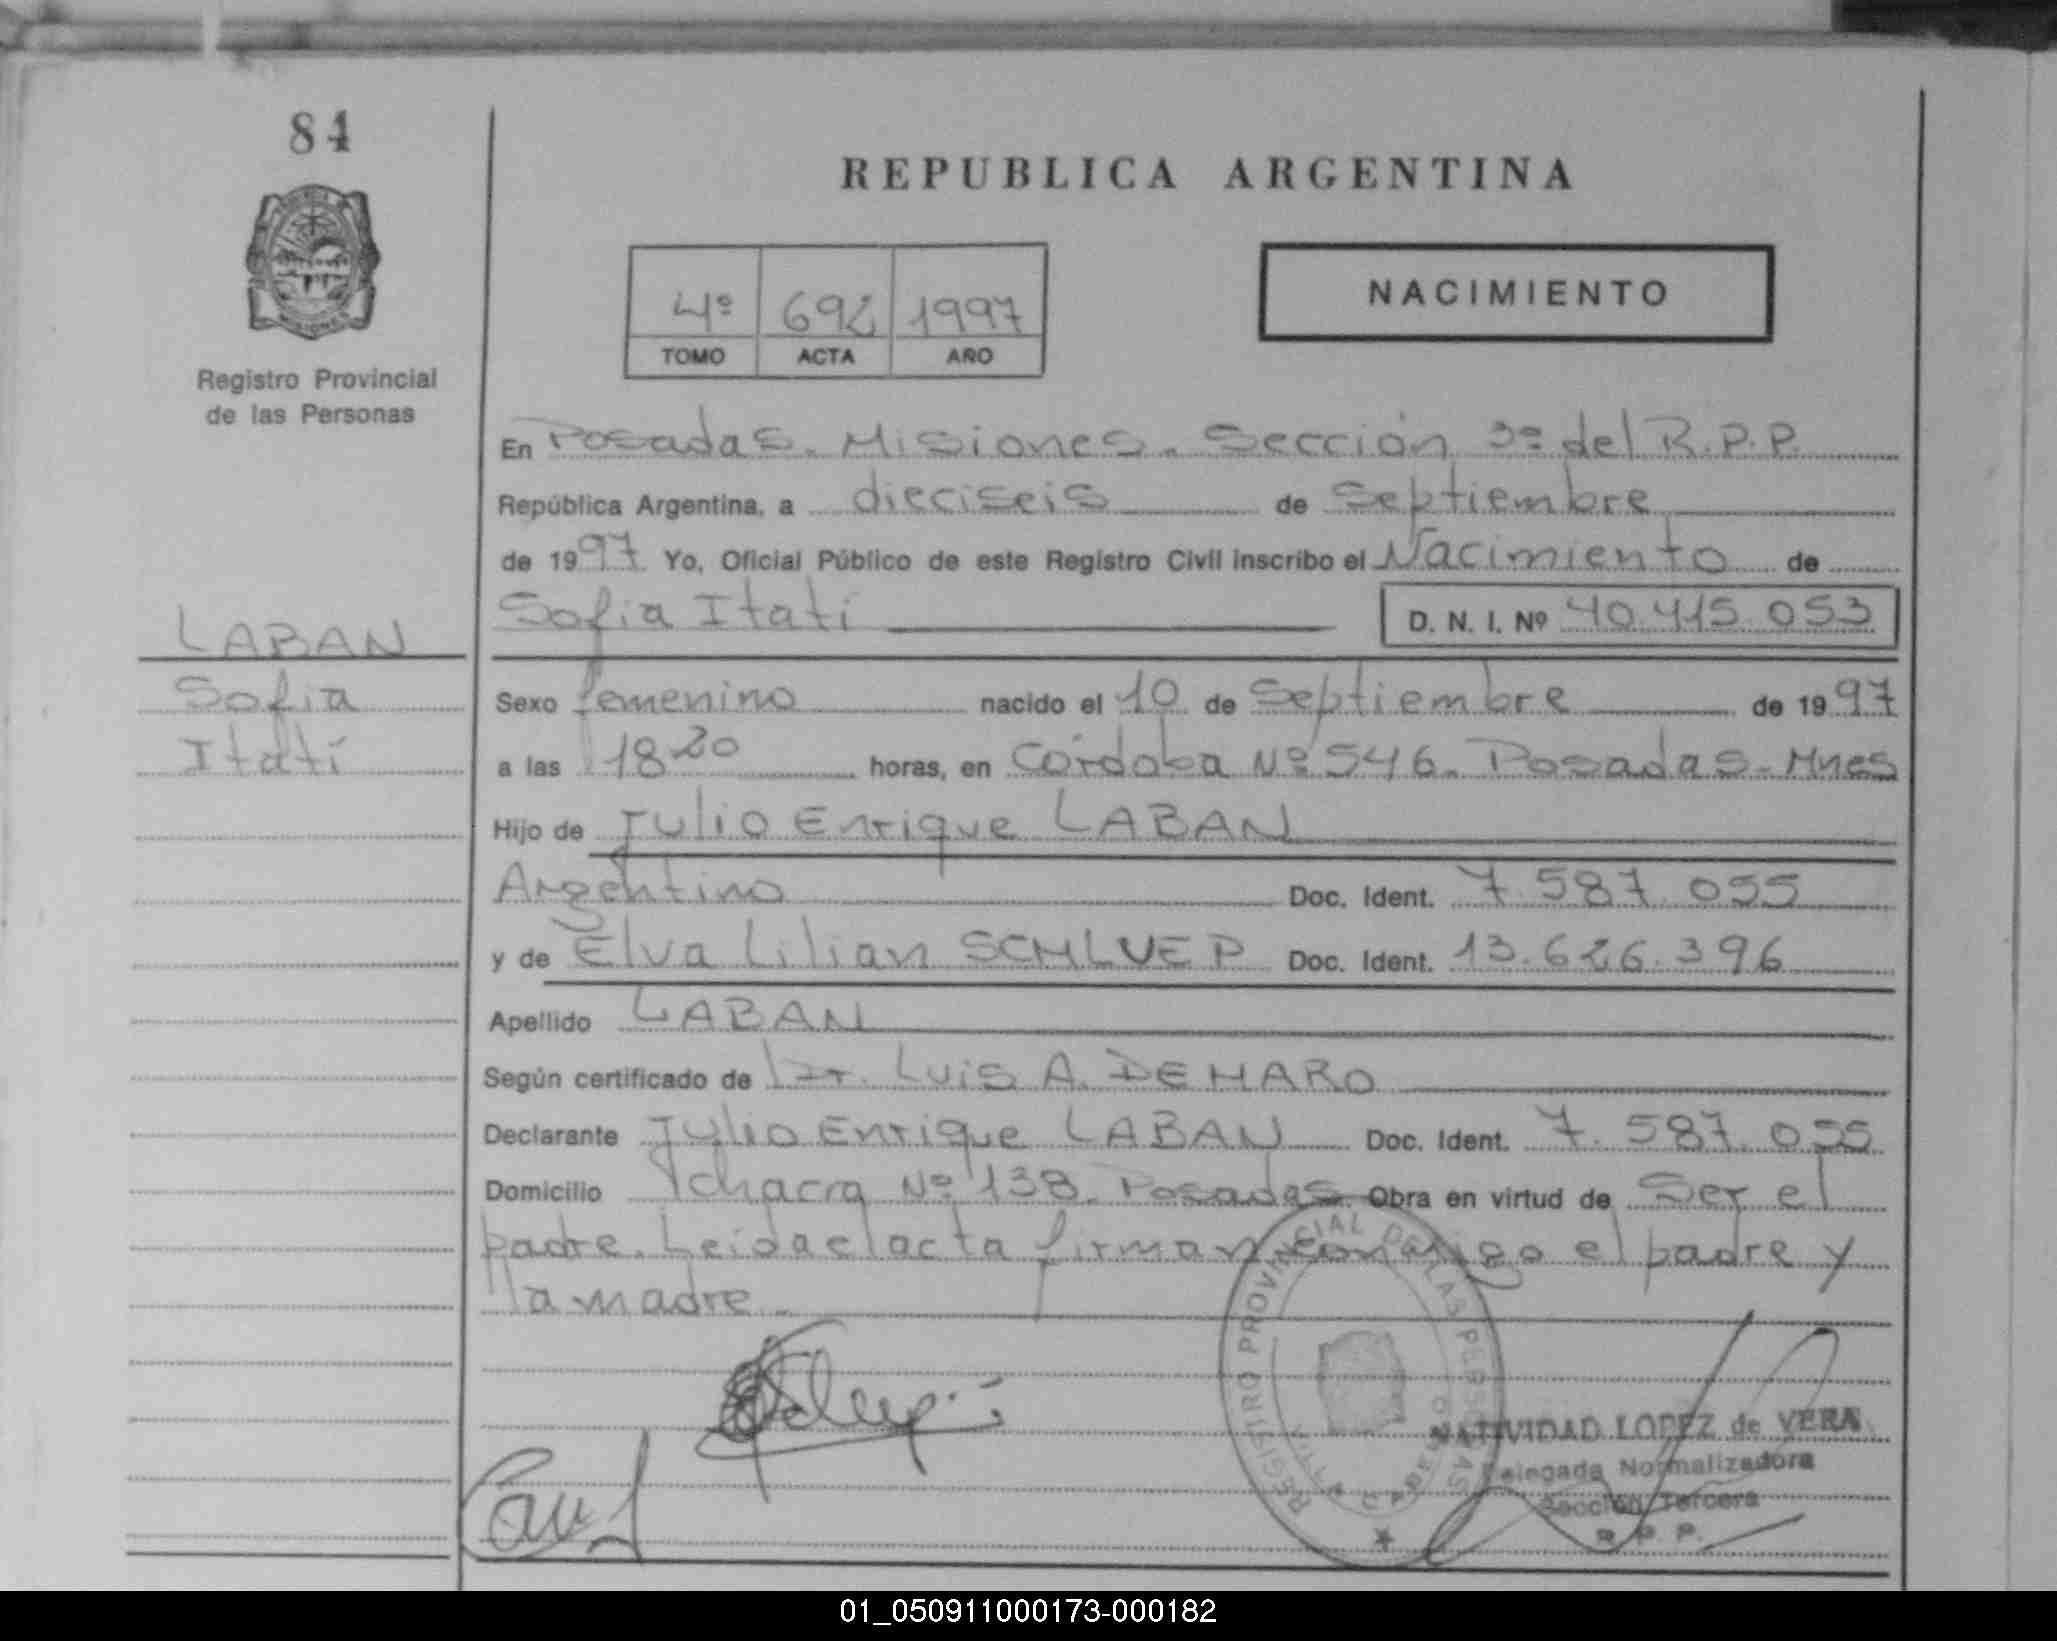 84
REPUBLICA ARGENTINA
4º 692 1997
TOMO ACTA AÑO
NACIMIENTO
MISIONES
Registro Provincial
de las Personas
En Posadas. Misiones. Sección 3ª del R.P.P.
República Argentina, a dieciseis de Septiembre
de 1997 Yo, Oficial Público de este Registro Civil inscribo el Nacimiento de
Sofia Itatí D. N. I. Nº 40.415.053
LABAN
Sofia
Itatí
Sexo femenino nacido el 10 de Septiembre de 1997
a las 18 20 horas, en Córdoba Nº 546. Posadas - Mnes
Hijo de Julio Enrique LABAN
Argentino Doc. Ident. 7.587.055
y de Elva Lilian SCHLUEP Doc. Ident. 13.626.396
Apellido LABAN
Según certificado de Dr. Luis A. DE HARO
Declarante Julio Enrique LABAN Doc. Ident. 7.587.055
Domicilio chacra Nº 138. Posadas Obra en virtud de Ser el
padre. Leida el acta firman conmigo el padre y
la madre.
REGISTRO PROVINCIAL DE LAS PERSONAS
VILLA CABELLO
NATIVIDAD LOPEZ de VERA
Delegada Normalizadora
Sección Tercera
R. P. P.
01_050911000173-000182